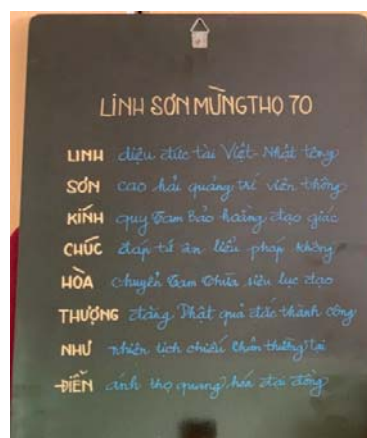 LINH SƠN MỪNG THỌ 70
LINH diệu đức tài Việt-Nhật tông
SƠN cao hải quảng trí viên thông
KÍNH quy Tam Bảo hoằng đạo giác
CHÚC đáp tứ ân liễu pháp không
HÒA chuyển Tam Thừa siêu lục đạo
THƯỢNG đăng Phật quả đắc thành công
NHƯ nhiên tịch chiếu Chân thường tại
ĐIỂN ánh thọ quang hóa đại đồng